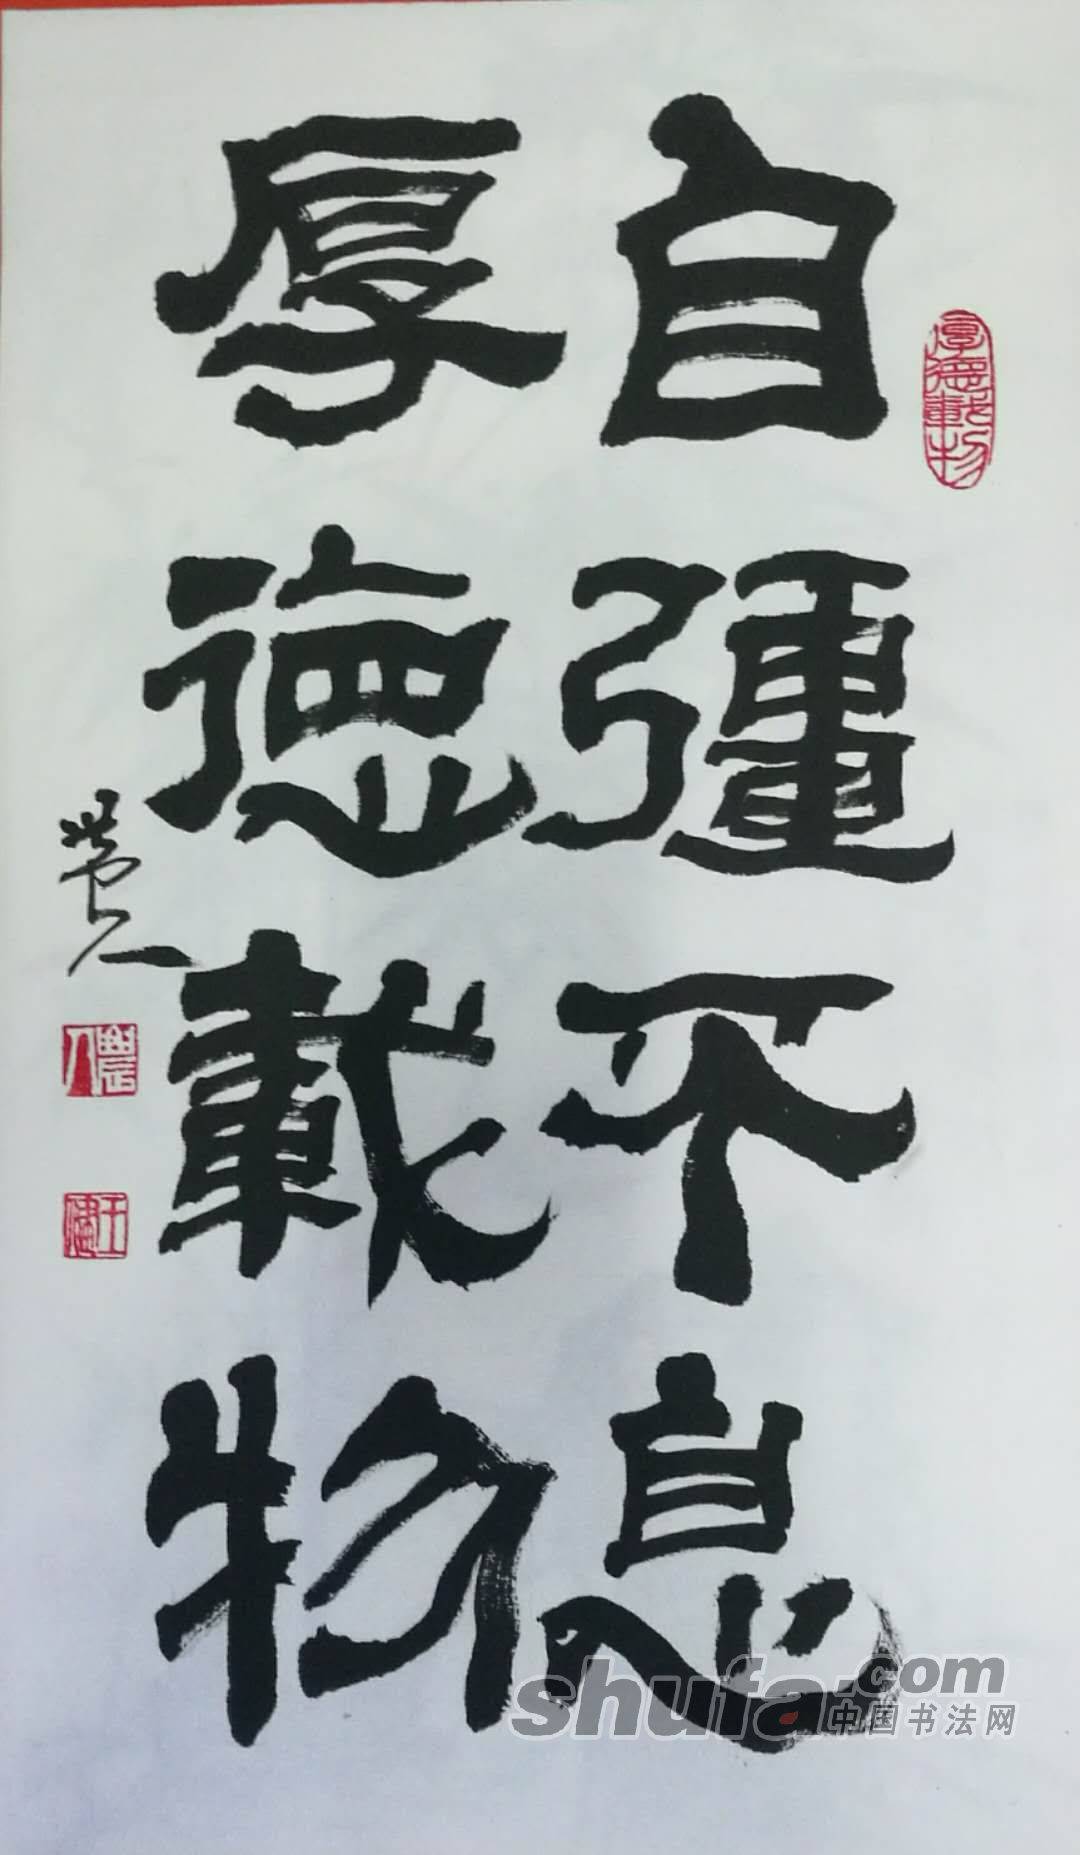 自彊不息
厚德載物
厚德載物
農人
農人
王健
shufa.com
中国书法网